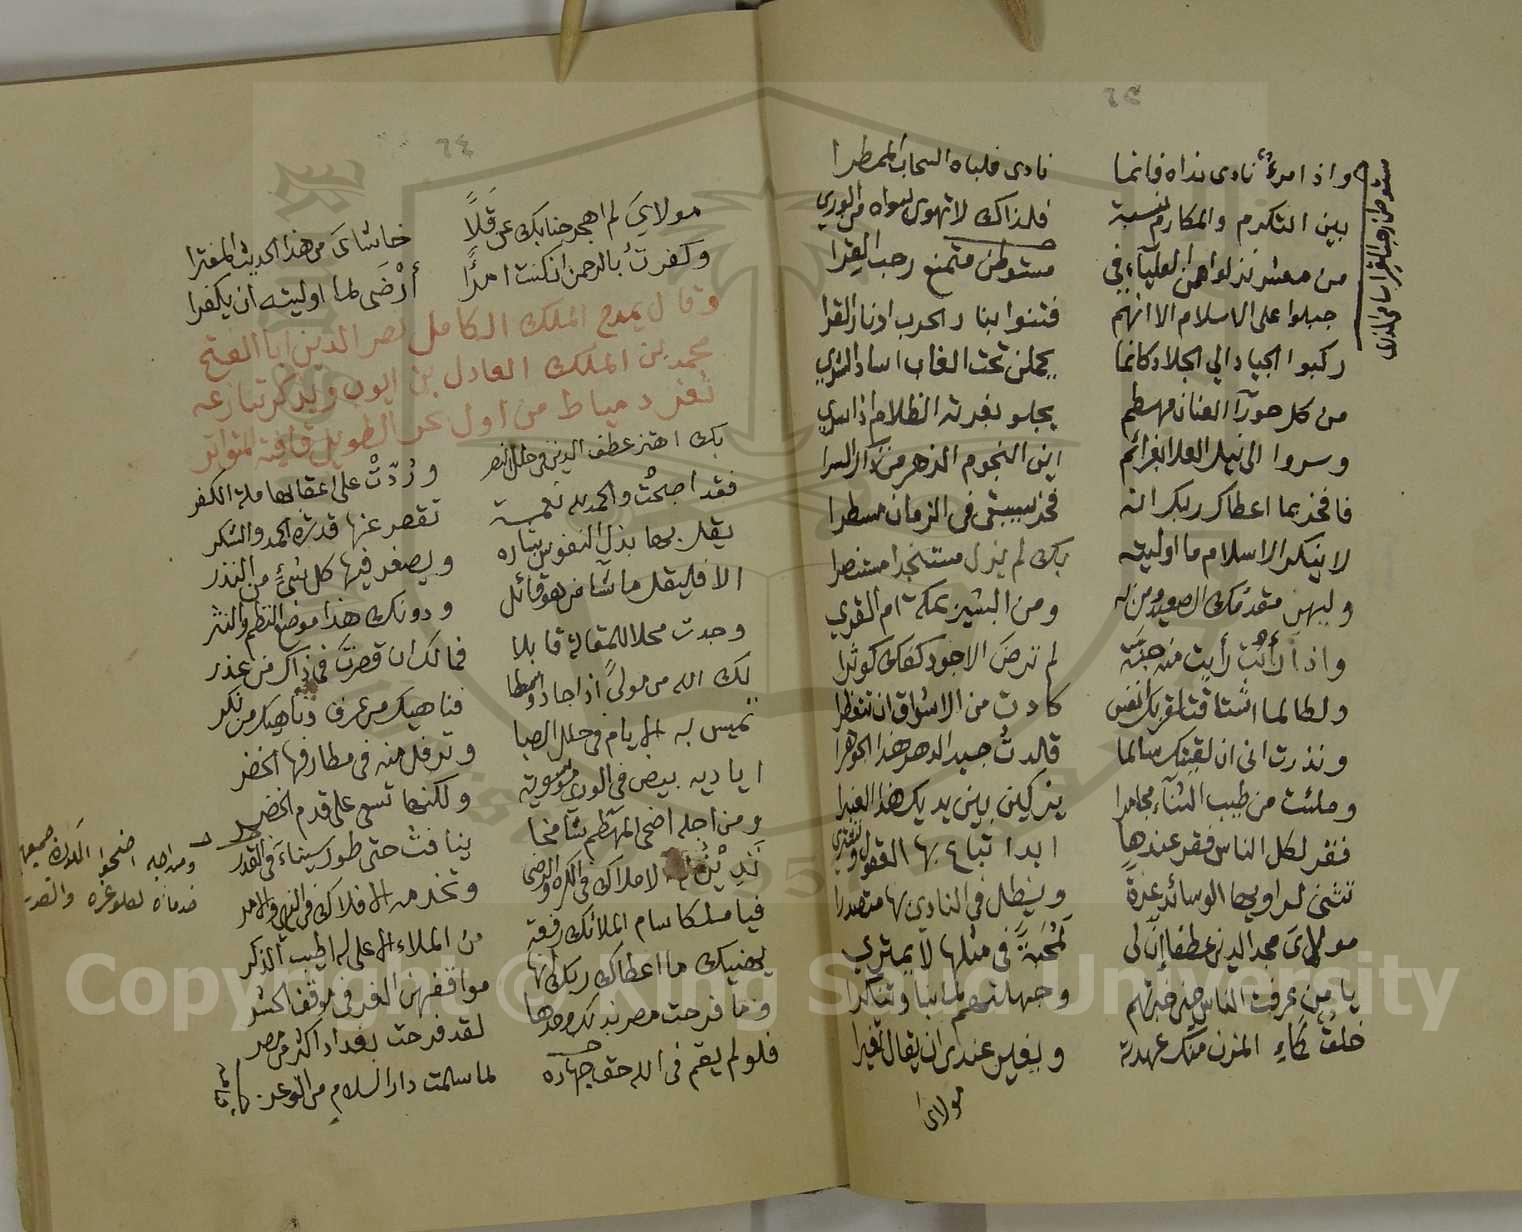 ٦٣
وإذا امرؤ نادى نداه فانما نادى فلباه السحاب الممطرا
بين التكرم والمكارم نسبة فلذاك لا تهوى سواه من الوري
من معشر نزلوا من العلياء في مستوطن متمنع رحب القرا
جبلوا على الاسلام الا انهم فتنوا بنار الحرب او نار القرا
ركبوا الجياد الي الجلاد كانما يحملن تحت الغاب اساد الشري
من كل موار العنان مطهم يجلو بغرته الظلام اذا سري
وسروا الى نيل العلا بعزائم اين النجوم الزهر من ذاك السرا
فافخر بما اعطاك ربك انه فخر سيبقى في الزمان مسطرا
لا ينكر الاسلام ما اوليته بك لم يزل مستنجدا مستنصرا
وليهن مقدمك الصعيد ومن به ومن البشير بمكة ام القري
واذا رأيت رأيت منه جنة لم ترض الا جود كفك كوثرا
ولطالما اشتاقت لقربك انفس كادت من الاشواق ان تتفطرا
ونذرت اني ان لقيتك سالما قلدت جيد الدهر هذا الجوهرا
وملئت من طيب الثناء مجامرا يذكين بين يديك هذا العنبرا
فقر لكل الناس فقر عندها ابدا تباع بها العقول وتشتري
تثني لراويها الوسائد عزة ويظل في النادي بها متصدرا
مولاى مجد الدين عطفا إن لي لمحبة في مثلها لا يمتري
يا من عرفت الناس حين خبرتهم وجهلتهم لما نبا وتنكرا
خلق كماء المزن منك عهدته ويعز عندي ان يقال تغيرا
مولاى
٦٤
مولاي لم اهجر جنابك عن قلاً حاشاى من هذا الحديث المفترا
وكفرت بالرحمن ان كنت امرأً أرضى لما اوليته ان يكفرا
وقال يمدح الملك الكامل نصر الدين ابا الفتح
محمد بن الملك العادل بن ايوب ويذكر انتزاعه
ثغر دمياط من اول بحر الطويل قافية المتواتر
بك اهتز عطف الدين في حلل النصر وردت على اعقابها ملة الكفر
فقد اصبحت والحمد لله نعمة تقصر عنها قدرة الحمد والشكر
يقل بها بذل النفوس بشارة ويصغر فيها كل شيء من النذر
الا فليقل ما شا من هو قائل ودونك هذا موضع النظم والنثر
وجدت محلا للمقالة قابلا فمالك ان قصرت في ذاك من عذر
لك الله من مولى اذا جاد او سطا فناهيك من عرف وناهيك من نكر
تميس به الايام في حلل الصبا وترفل منه في مطارفها الخضر
اياديه بيض في الوري موسوية ولكنها تسعى على قدم الخضر
ومن اجله اضحى المقطم شامخا ينافس حتى طور سيناء في القدر
تدين له الاملاك في الكره والرضى وتخدمه الافلاك في النهي والامر
فيا ملكا سام الملائك رفعة من الملاء الاعلى له اطيب الذكر
ليهنيك ما اعطاك ربك انها مواقف هن الغر في موقف الحشر
وما فرحت مصر بذلك وحدها لقد فرحت بغداد اكثر من مصر
فلو لم يقم في الله حق جهاده لما سلمت دار السلام من الذعر